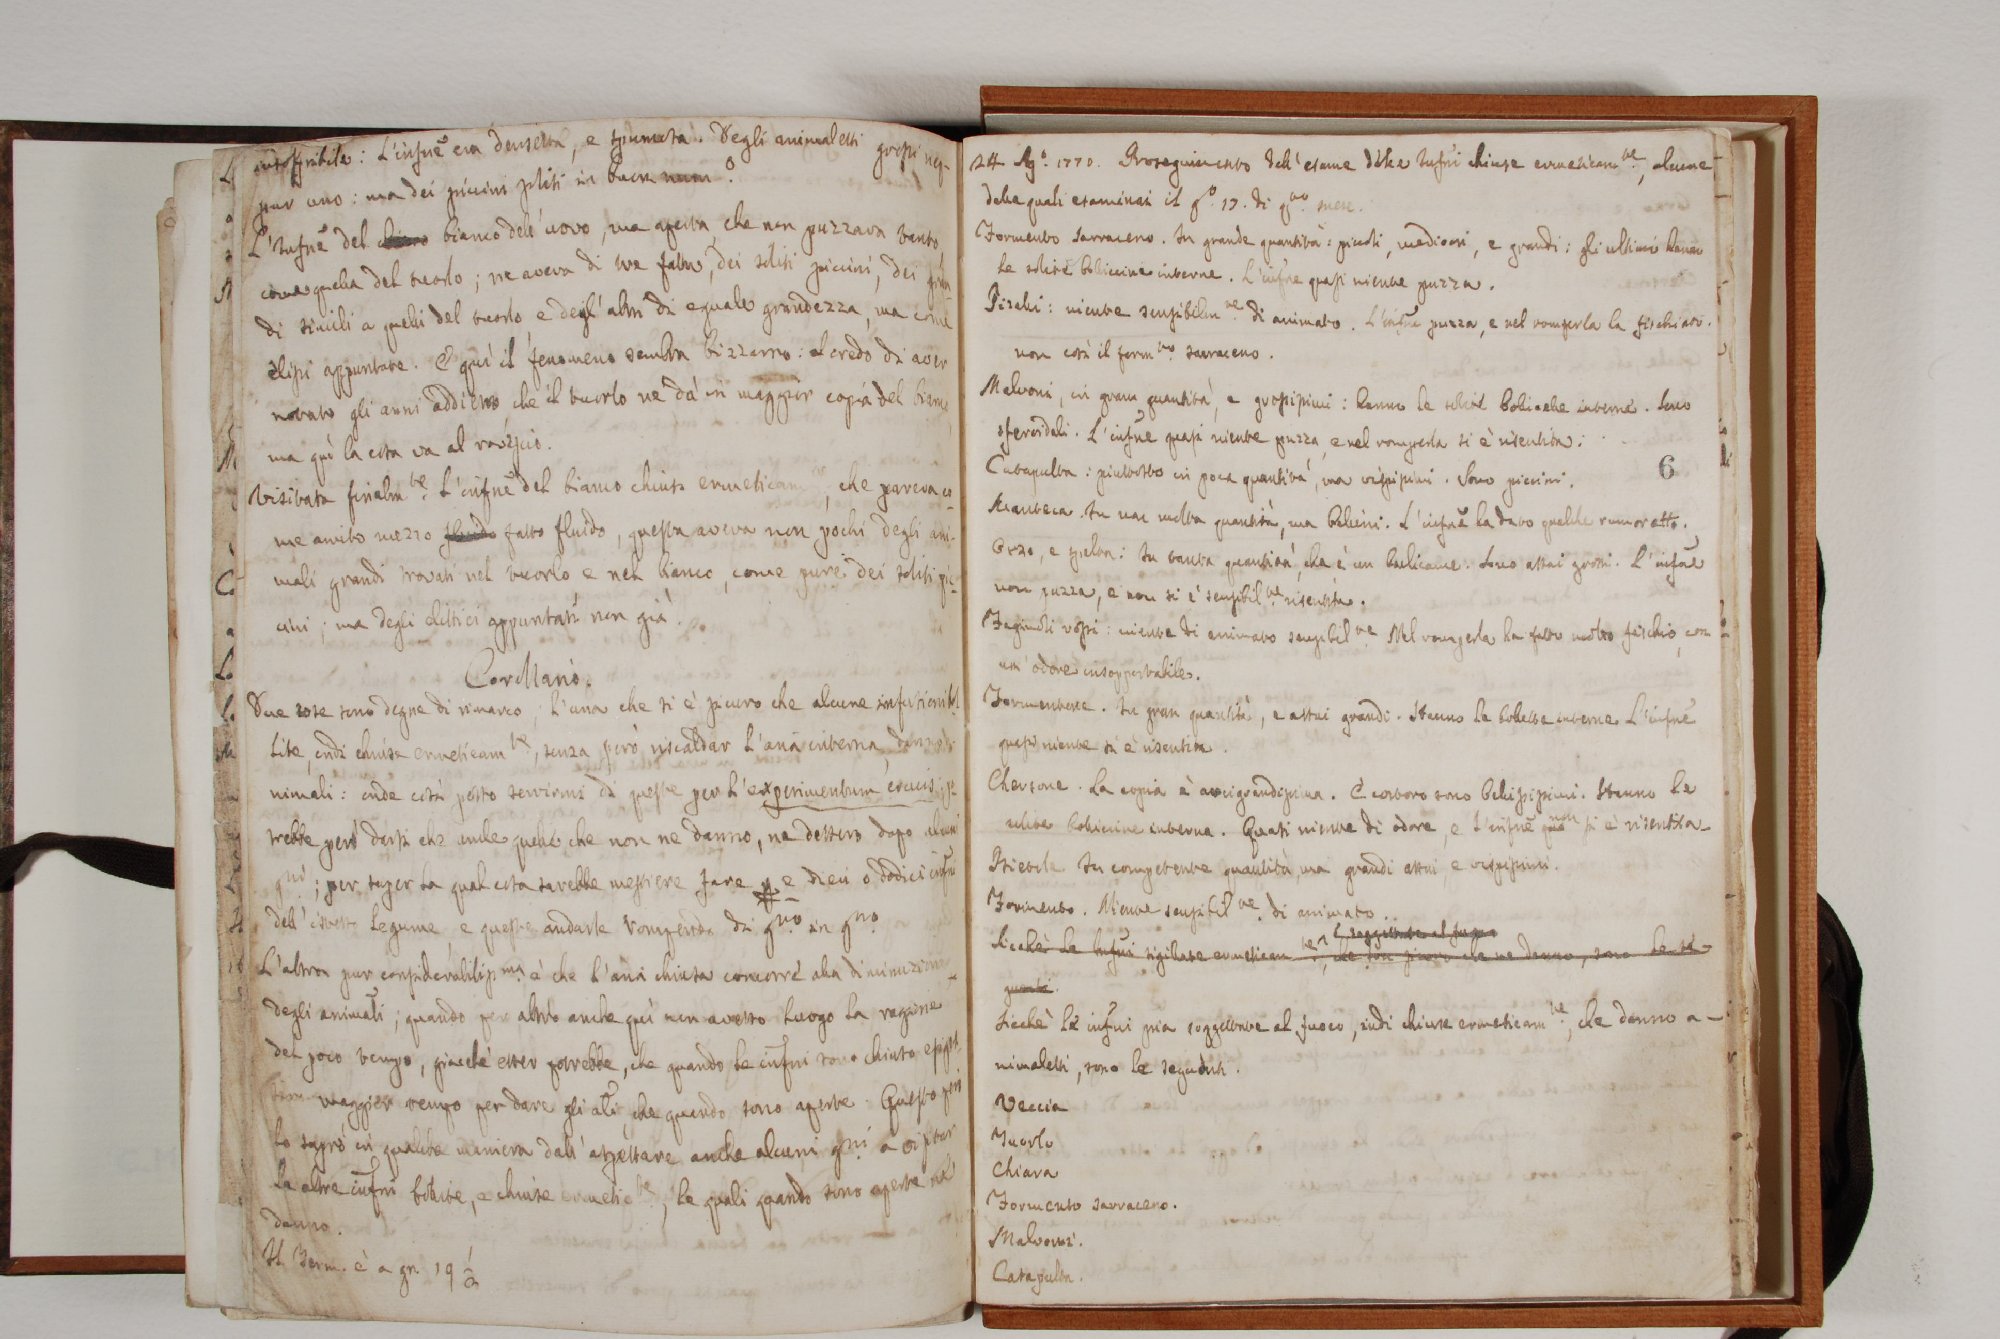 insoffribile: L'infuẽ era densetta, e spumata. Degli animaletti grossi nep-
pur uno: ma dei piccini soliti in buon num°.
L'Infuẽ del chiaro bianco dell'uovo, ma aperta, che non puzzava tanto
come quella del tuorlo; ne aveva di tre fatte, dei soliti piccini, dei gran
di simili a quelli del tuorlo e degl'altri di eguale grandezza, ma come
elissi appuntate. E quì il fenomeno sembra bizzarro: credo di aver
notato gli anni addietro che il tuorlo ne dà in maggior copia del bianco
ma quì la cosa va al rovescio.
Visitata finalm.te L'infuẽ del bianco chiusa ermeticam, che pareva co-
me amito mezzo fluido fatto fluido, questa aveva non pochi degli ani-
mali grandi trovati nel tuorlo e nel bianco, come pure dei soliti pic-
cini; ma degli elittici appuntati non già.
Corollario.
Due cose sono degne di rimarco; L'una che si è sicuro che alcune infusioni bol
lite, indi chiuse ermeticam.te, senza però riscaldar l'aria interna, danno a
nimali: onde così posso servirmi di queste per l'experimentum crucis. po-
trebbe però darsi che anche quelle che non ne danno, ne dessero dopo alcuni
gni; per saper la qual cosa sarebbe mestiere fare e dieci o dodici infusi
dell'istesso legume e queste andarle rompendo di g.no in g.no
L'altra pur considerabiliss.ma è che l'aria chiusa concorre alla diminuzione
degli animali; quando per altro anche quì non avesse luogo la ragione
del poco tempo, giacché esser potrebbe, che quando le infusi sono chiuse esigess.
maggior tempo per dare gli ali, che quando sono aperte. Questo però
lo saprò in qualche maniera dall'aspettare anche alcuni gni a visitar
la altre infusi bollite, e chiuse ermetic.te, le quali quando sono aperte ne
danno.
Il Term. è a gr. 19 1/2
24 Ag.° 1770. Proseguimento dell'esame delle Infusi chiuse ermeticam.te, alcune
delle quali esaminai il g.° 17. di q.to mese.
Formento sarraceno. In grande quantità: piccoli, mediocri, e grandi: gli ultimi hanno
le solite bollicine interne. L'infue quasi niente puzza.
Piselli: niente sensibilm.te di animato. L'infuẽ puzza, e nel romperla ha fischiato.
non così il form.to sarraceno.
Malvoni, in gran quantità, e grossissimi: hanno le solite bollicelle interne. Sono
sferoidali. L'infuẽ quasi niente puzza, e nel romperla si è risentita.
Catapulta: piuttosto in poca quantità, ma vispissimi. Sono piccini.
6
In non molta quantità, ma bellini. L'infuẽ ha dato qualche rumoretto.
Orzo, e spelta: In tanta quantità, che è un bulicame. Sono assai grossi. L'infue
non puzza, e non si è sensibil.te risentita.
Fagiuoli rossi: niente di animato sensibil.te Nel romperla ha fatto molto fischio, con
un'odore insopportabile.
Formentone. In gran quantità, e assai grandi. Hanno le bollette interne. L'infuẽ
quasi niente si è risentita.
La copia è arcigrandissima. E costoro sono bellissimi. Hanno le
solite bollicine interne. Quasi niente di odore, e l'infuẽ non si è risentita.
In competente quantità, ma grandi assai, e vispissimi.
Formento. Niente sensibil.te di animato.
e soggettate al fuoco
Sicché le Infusi sigillate ermeticam.te, che son sicuro che ne danno, sono le se-
guenti.
Sicchè le infusi pria soggettate al fuoco, indi chiuse ermeticam.te, che danno a-
nimaletti, sono le seguenti.
Veccia
Tuorlo
Chiara
Formento sarraceno.
Malvoni.
Catapulta.